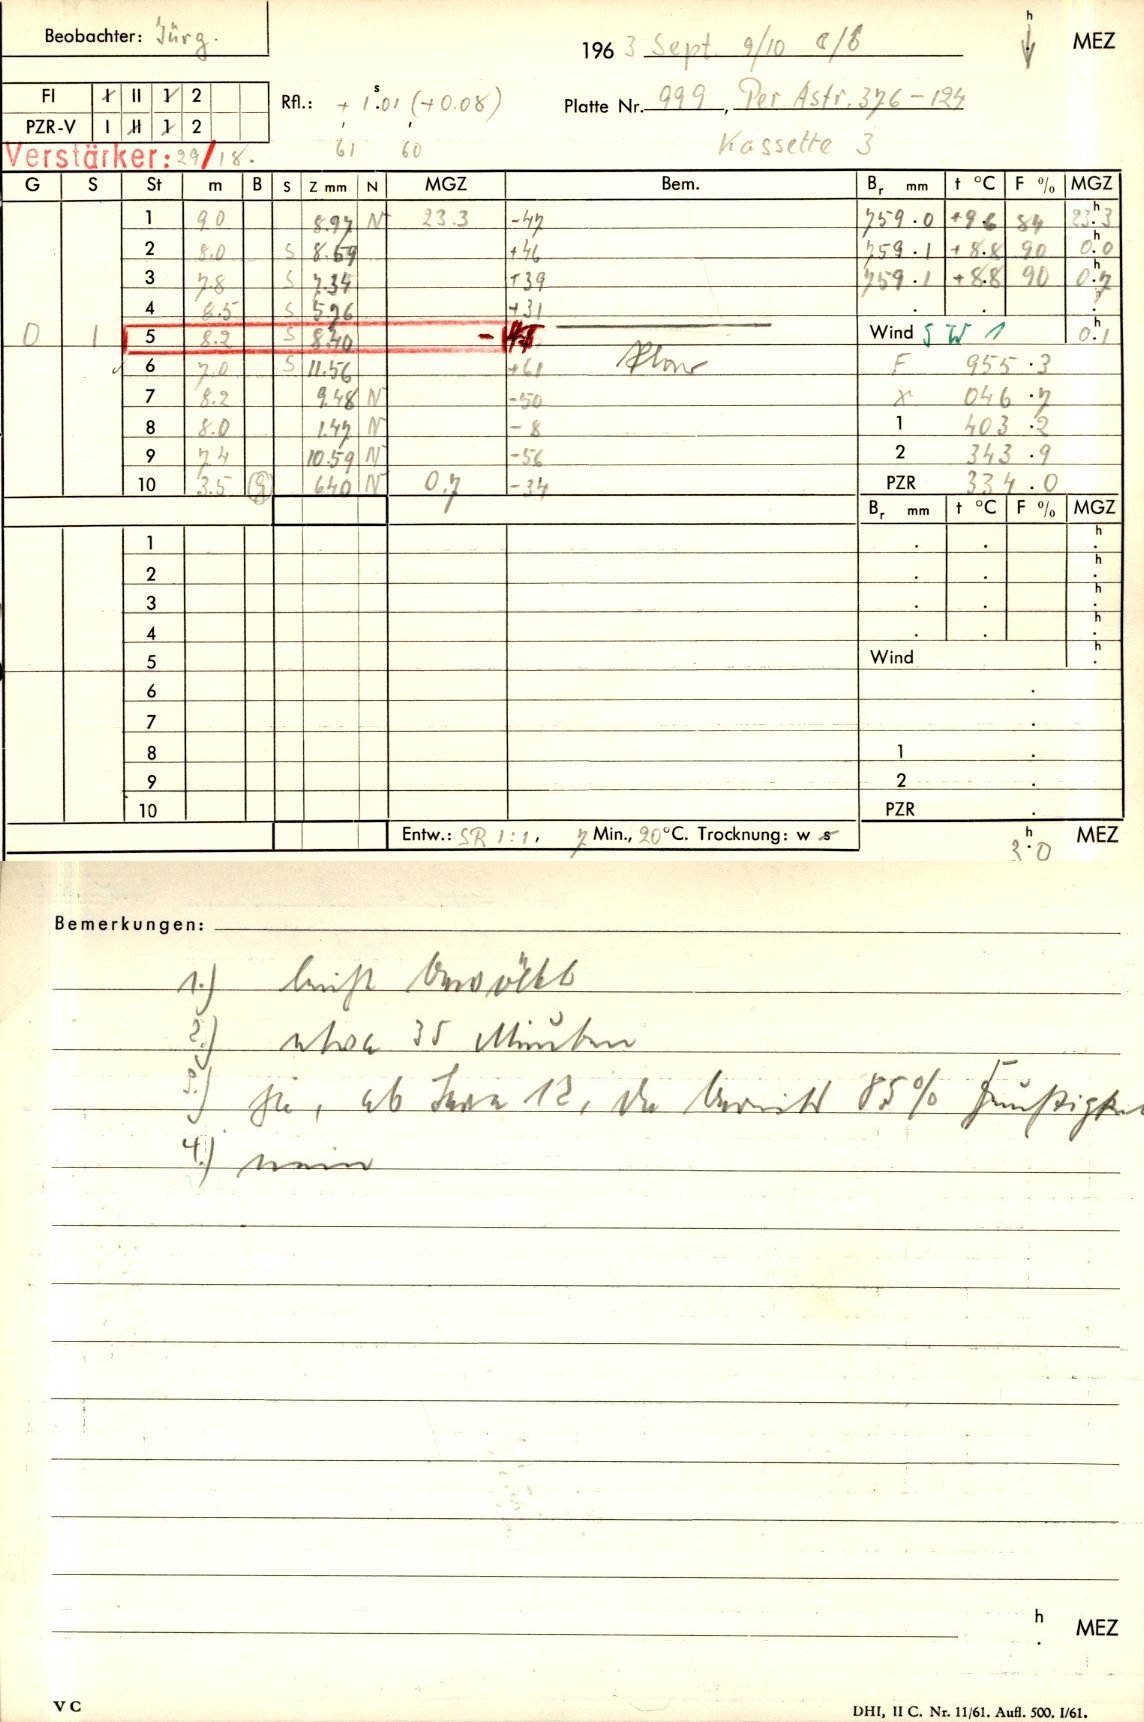 Beobachter: Jürg.
h MEZ
196 3 Sept. 9/10 a/b
FI I II 1 2
PZR-V I II 1 2
Rfl.: + 1s.01 (+0.08)
61 60
Platte Nr. 999, Per Astr. 376-124
Kassette 3
Verstärker: 29/18.
G S St m B S Z mm N MGZ Bem. Br mm t °C F % MGZ
1 9.0 8.97 N 23.3 -47 759.0 +9.6 84 23h.3
2 8.0 S 8.69 +46 759.1 +8.8 90 0h.0
3 7.8 S 7.34 +39 759.1 +8.8 90 0h.7
4 8.5 S 5.76 +31 . . .
0 1 5 8.2 S 8.40 - Wind SW 1 0h.1
6 7.0 S 11.56 +61 F 955.3
7 8.2 9.48 N -50 x 046.7
8 8.0 1.47 N -8 1 403.2
9 7.4 10.59 N -56 2 343.9
10 3.5 6.40 N 0.7 -34 PZR 334.0
Br mm t °C F % MGZ
1 . . h.
2 . . h.
3 . . h.
4 . . h.
5 Wind h.
6 .
7 .
8 1 .
9 2 .
10 PZR .
Entw.: SR 1:1, 7 Min., 20°C. Trocknung: w s
3h.0 MEZ
Bemerkungen:
1.) leicht bewölkt
2.) etwa 35 Minuten
3.) ja, ab 12, da bereits 85%
4.) nein
h. MEZ
V C
DHI, II C. Nr. 11/61. Aufl. 500. I/61.